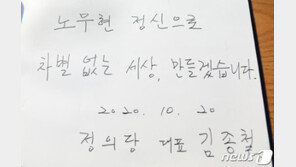 노무현 정신으로
차별 없는 세상, 만들겠습니다.
2020. 10. 20
정의당 대표 김종철
뉴스1